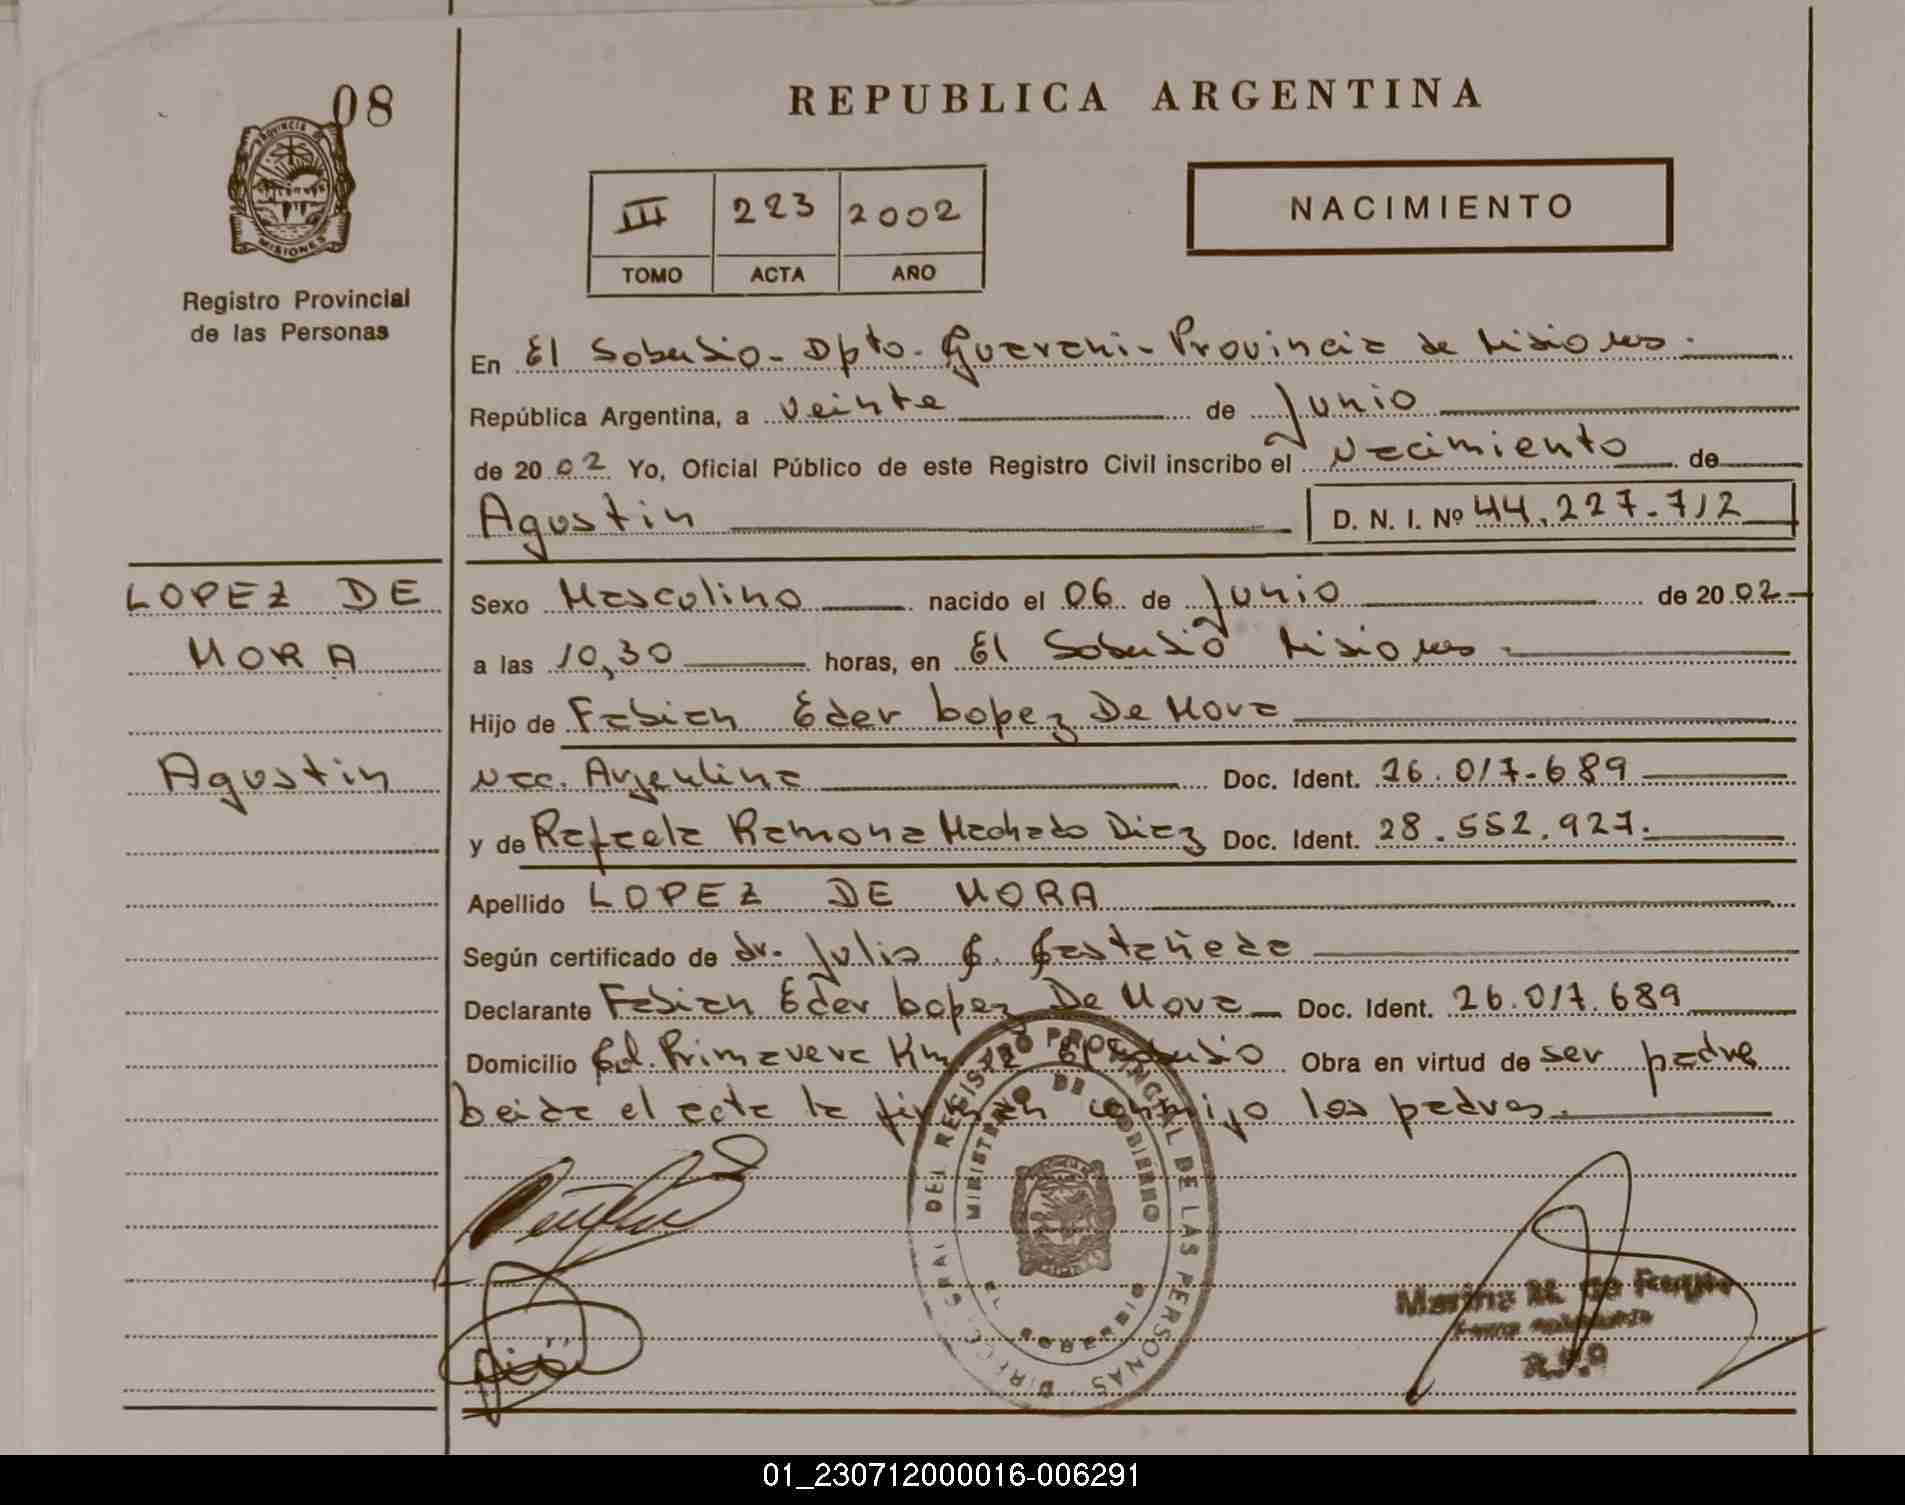 08
REPUBLICA ARGENTINA
PROVINCIA DE
MISIONES
Registro Provincial
de las Personas
III 223 2002
TOMO ACTA AÑO
NACIMIENTO
En El Soberbio - Dpto. Guarani - Provincia de Misiones.
República Argentina, a veinte de Junio
de 2002 Yo, Oficial Público de este Registro Civil inscribo el Nacimiento de
Agustin D. N. I. Nº 44.227.712
LOPEZ DE
MORA
Agustin
Sexo Masculino nacido el 06 de Junio de 2002
a las 10,30 horas, en El Soberbio Misiones
Hijo de Fabian Eder Lopez De Mora
Nac. Argentina Doc. Ident. 26.017.689
y de Rafaela Ramona Machado Diaz Doc. Ident. 28.552.927.
Apellido LOPEZ DE MORA
Según certificado de dr. Julio C. Castañeda
Declarante Fabian Eder Lopez De Mora Doc. Ident. 26.017.689
Domicilio Col. Primavera Km El Soberbio Obra en virtud de ser padre
Leida el acta la firman conmigo los padres.
DIREC. GRAL DEL REGISTRO PROVINCIAL DE LAS PERSONAS
MINISTERIO DE GOBIERNO
EL SOBERBIO
Marina M. de
01_230712000016-006291